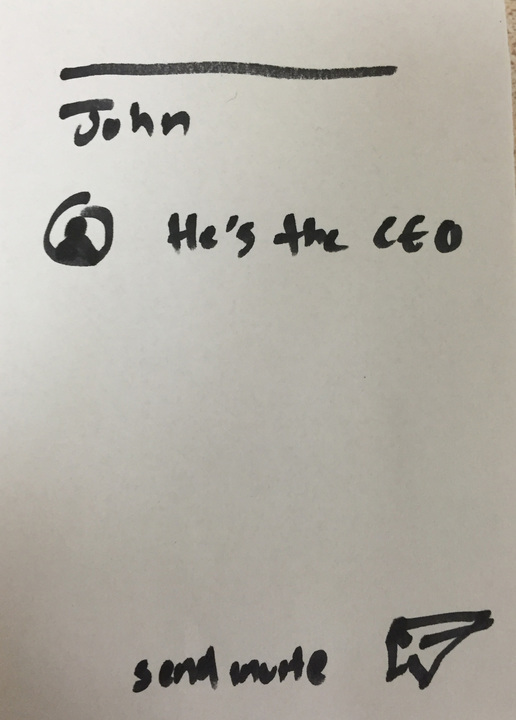 John
He's the CEO
send invite